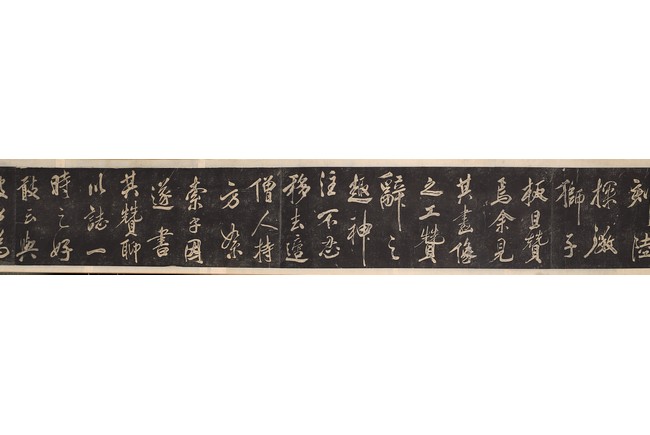 刻陸
探微
獅子
板且贊
焉余見
其畫像
之工贊
辭之
趣神
注不忍
移去適
僧人持
方絮
索字因
遂書
其贊聊
以誌一
時之好
敢云與